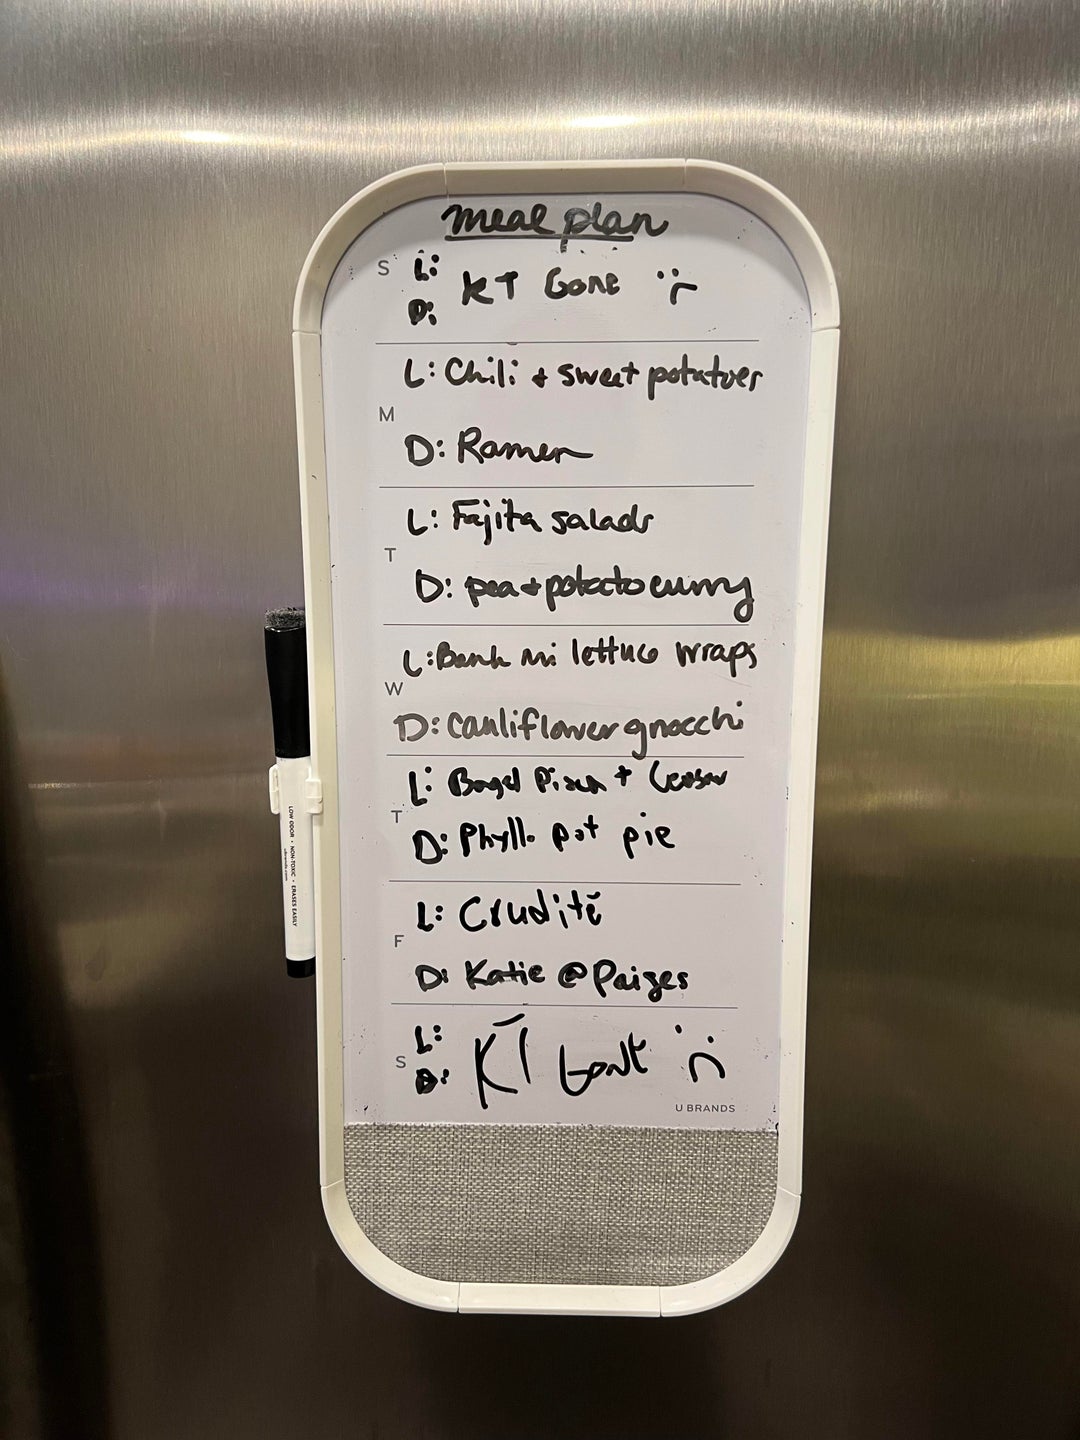 meal plan
S
L:
D:
KT Gone :(
L: Chili + sweet potatoes
M
D: Ramen
L: Fajita salads
T
D: pea + potato curry
L: Banh mi lettuce wraps
W
D: Cauliflower gnocchi
L: Bagel Pizza +
T
D: Phyllo pot pie
L: Crudité
F
D: Katie @ Paiges
L:
S
D:
KT Gone :(
U BRANDS
LOW ODOR • NON-TOXIC • ERASES EASILY